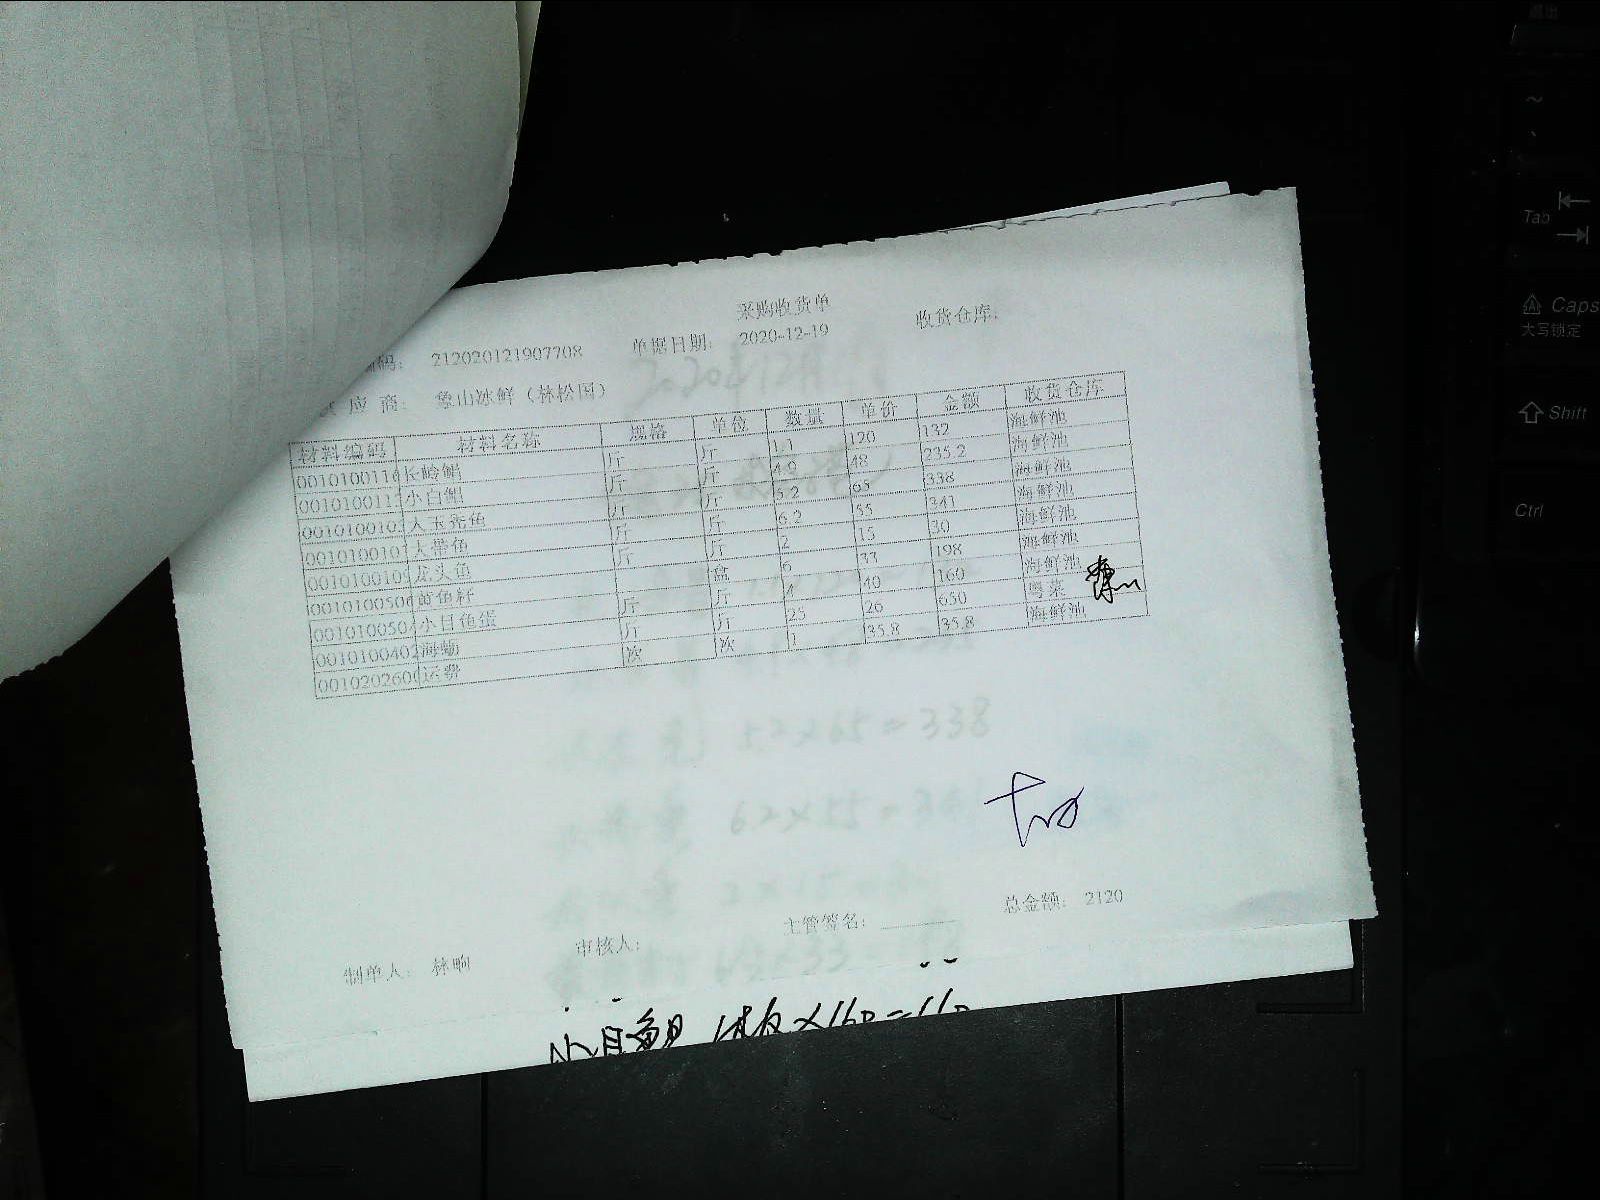 采购收货单
编码: 212020121907708 单据日期: 2020-12-19 收货仓库:
应 商: 象山冰鲜（林松国）
材料编码 材料名称 规格 单位 数量 单价 金额 收货仓库
0010100116 长鲳 斤 斤 1.1 120 132 海鲜池
001010011 小白鲳 斤 斤 4.9 48 235.2 海鲜池
001010010 大玉秃鱼 斤 斤 5.2 65 338 海鲜池
0010100101 大带鱼 斤 斤 6.2 55 341 海鲜池
001010010 龙头鱼 斤 斤 2 15 30 海鲜池
0010100506 鱼籽 盒 6 33 198 海鲜池
001010050 小目鱼蛋 斤 斤 4 40 160 海鲜池
0010100402 海蛎 斤 斤 25 26 650 粤菜
0010202600 运费 次 次 1 35.8 35.8 海鲜池
5.2×65=338
6.2×55=341
制单人: 林 审核人: 主管签名: 总金额: 2120